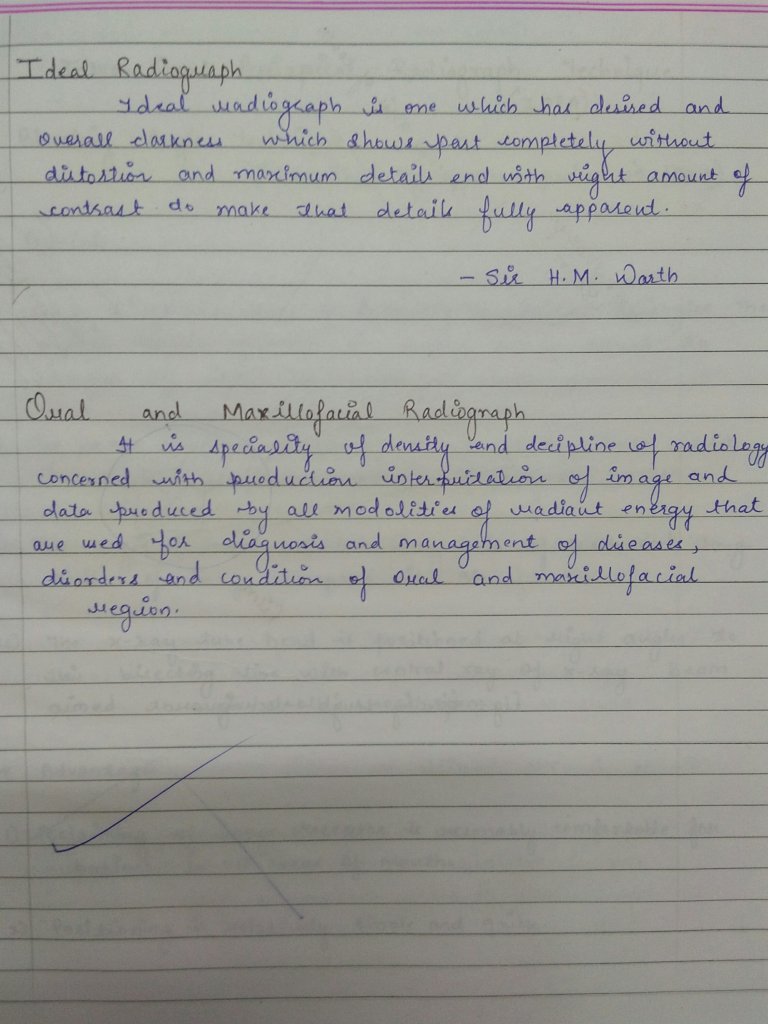 Ideal Radiograph
Ideal radiograph is one which has desired and
overall darkness which shows part completely without
distortion and maximum details end with right amount of
contrast to make that details fully apparent.
- Sir H.M. Warth
Oral and Maxillofacial Radiograph
It is speciality of density and decipline of radiology
concerned with production interpritation of image and
data produced by all modolities of radiant energy that
are used for diagnosis and management of diseases,
disorders and condition of oral and maxillofacial
region.